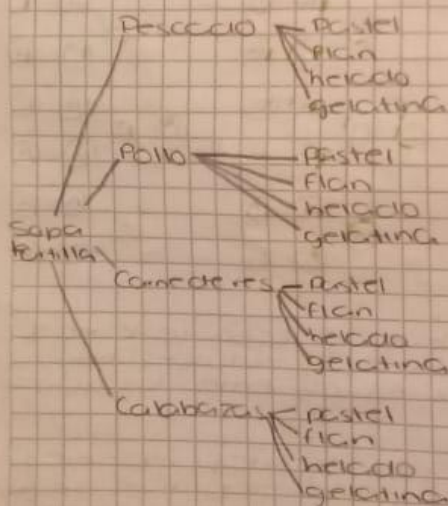 Pescado
pastel
flan
helado
gelatina
Pollo
pastel
flan
helado
gelatina
Sopa
tortilla
Carne de res
pastel
flan
helado
gelatina
Calabazas
pastel
flan
helado
gelatina